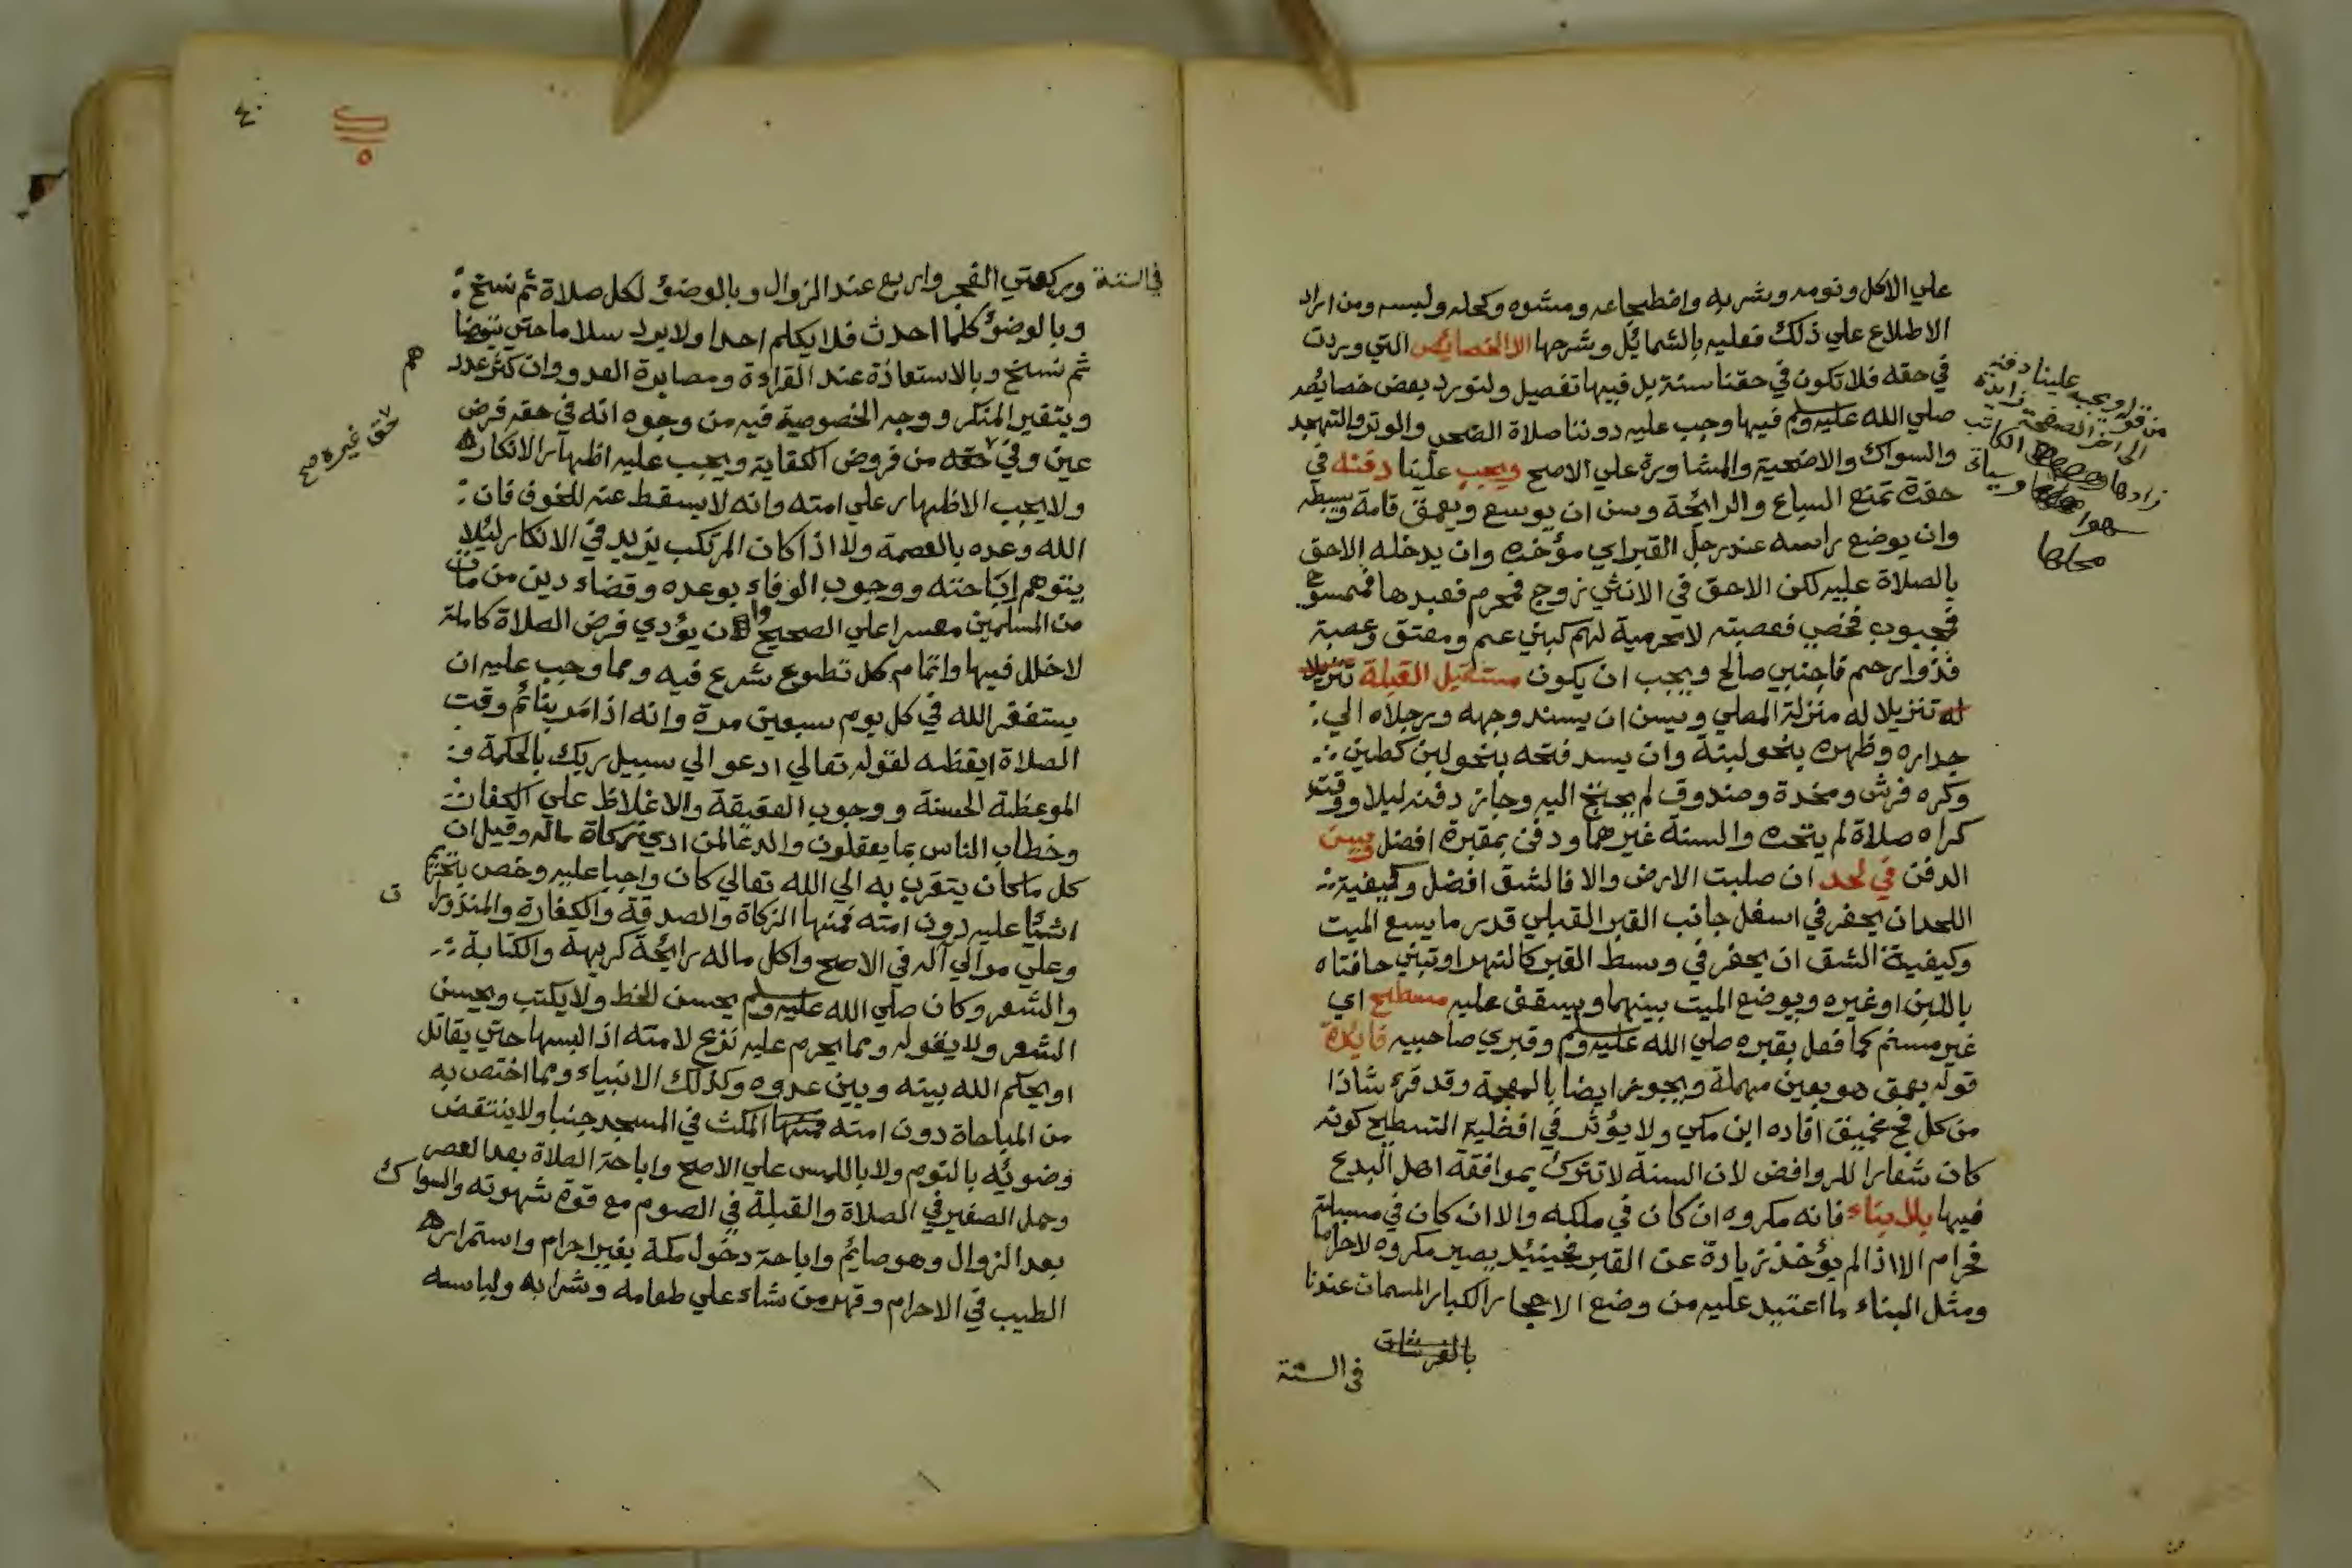 علي الاكل ونومه وشربه واضطجاعه ومشوه وكحله ولبسه ومن اراد
الاطلاع علي ذلك فعليه بالشمائل وشرحها الا الخصائص التي وردت
في حقه فلا تكون في حقنا سنة بل فيها تفصيل ولنورد بعض خصايصه
صلي الله عليه وسلم فيها وجب عليه دوننا صلاة الضحي والوتر والتهجد
والسواك والاضحية والمشاورة علي الاصح ويجب علينا دفنه في
حفرة تمنع السباع والرائحة وسن ان يوسع ويعمق قامة وبسطه
وان يوضع راسه عند رجل القبر اي مؤخره وان يدخله الاحق
بالصلاة عليه لكن الاحق في الانثي زوج فمحرم فعبدها فممسوح
فمجبوب فخصي فعصبته لا محرمية لهم كبني عم ومعتق وعصبة
فذوا رحم فاجنبي صالح ويجب ان يكون مستقبل القبلة تنزيلا
له تنزيلا له منزلة المصلي ويسن ان يسند وجهه ورجلاه الي
جداره وظهره بنحو لبنة وان يسد فتحه بنحو لبن كطين
وكره فرش ومخدة وصندوق لم يحتج اليه وجاز دفنه ليلا ووقت
كراه صلاة لم يتحره والسنة غيرهما ودفن بمقبرة افضل ويسن
الدفن في لحد ان صلبت الارض والا فالشق افضل وكيفية
اللحد ان يحفر في اسفل جانب القبر القبلي قدر ما يسع الميت
وكيفية الشق ان يحفر في وسط القبر كالنهر او تبني حافتاه
باللبن او غيره ويوضع الميت بينهما ويسقف عليه مسطح اي
غير مسنم كما فعل بقبره صلي الله عليه وسلم وقبري صاحبيه فايدة
قوله يعمق هو بعين مهملة ويجوز ايضا بالمعجمة وقد قرئ شاذا
من كل فج غميق افاده ابن مكي ولا يؤثر في افضلية التسطيح كونه
كان شعارا للروافض لان السنة لا تترك بموافقة اهل البدع
فيها بلا بناء فانه مكروه ان كان في ملكه والا ان كان في مسبلة
فحرام الا اذا لم يؤخذ زيادة عن القبر فحينئذ يصير مكروه لا حراما
ومثل البناء ما اعتيد عليه من وضع الاحجار الكبار المسمات عندنا
في السنة
من قوله ويجب علينا دفنه
الي اخر الصفحة زايدة
زادها الكاتب
سهوا وسياتي
محلها
٤٠
في السنة وركعتي الفجر واربع عند الزوال وبالوضوء لكل صلاة ثم نسخ
وبالوضوء كلما احدث فلا يكلم احدا ولا يرد سلاما حتي يتوضا
ثم نسخ وبالاستعاذة عند القراءة ومصابرة العدو وان كثر عدد
وبتغير المنكر ووجه الخصوصية فيه من وجوه انه في حقه فرض
عين وفي حقه من فروض الكفاية ويجب عليه اظهار الانكار
ولا يجب الاظهار علي امته وانه لا يسقط عنه للخوف فان
الله وعده بالعصمة ولا اذا كان المرتكب يزيد في الانكار لئلا
يتوهم اباحته ووجوب الوفاء بوعده وقضاء دين من مات
من المسلمين معسرا علي الصحيح وان يؤدي فرض الصلاة كاملة
لا خلل فيها واتمام كل تطوع شرع فيه ومما وجب عليه ان
يستغفر الله في كل يوم سبعين مرة وانه اذا مر بنائم وقت
الصلاة ايقظه لقوله تعالي ادعو الي سبيل ربك بالحكمة و
الموعظة الحسنة ووجوب العقيقة والاغلاظ علي الكفار
وخطاب الناس بما يعقلون والدعا لمن ادي زكاة ماله وقيل ان
كل ما كان يتقرب به الي الله تعالي كان واجبا عليه وخص بتحريم
اشيا عليه دون امته فمنها الزكاة والصدقة والكفارة والمنذورات
وعلي موالي آله في الاصح واكل ماله رائحة كريهة والكتابة
والشعر وكان صلي الله عليه وسلم يحسن الخط ولا يكتب ويحسن
الشعر ولا يقوله ومما يحرم عليه نزع لامته اذا لبسها حتي يقاتل
او يحكم الله بينه وبين عدوه وكذلك الانبياء ومما اختص به
من المباحاة دون امته فمنها المكث في المسجد جنبا ولا ينتقض
وضوئه بالنوم ولا باللمس علي الاصح واباحة الصلاة بعد العصر
وحمل الصغير في الصلاة والقبلة في الصوم مع قوة شهوته والسواك
بعد الزوال وهو صائم واباحة دخول مكة بغير احرام واستمراره
الطيب في الاحرام وقهر من شاء علي طعامه وشرابه ولباسه
هم
حق غيره صح